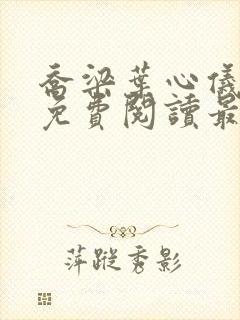 喬梁葉心儀
免費閱讀最
萍蹤秀影